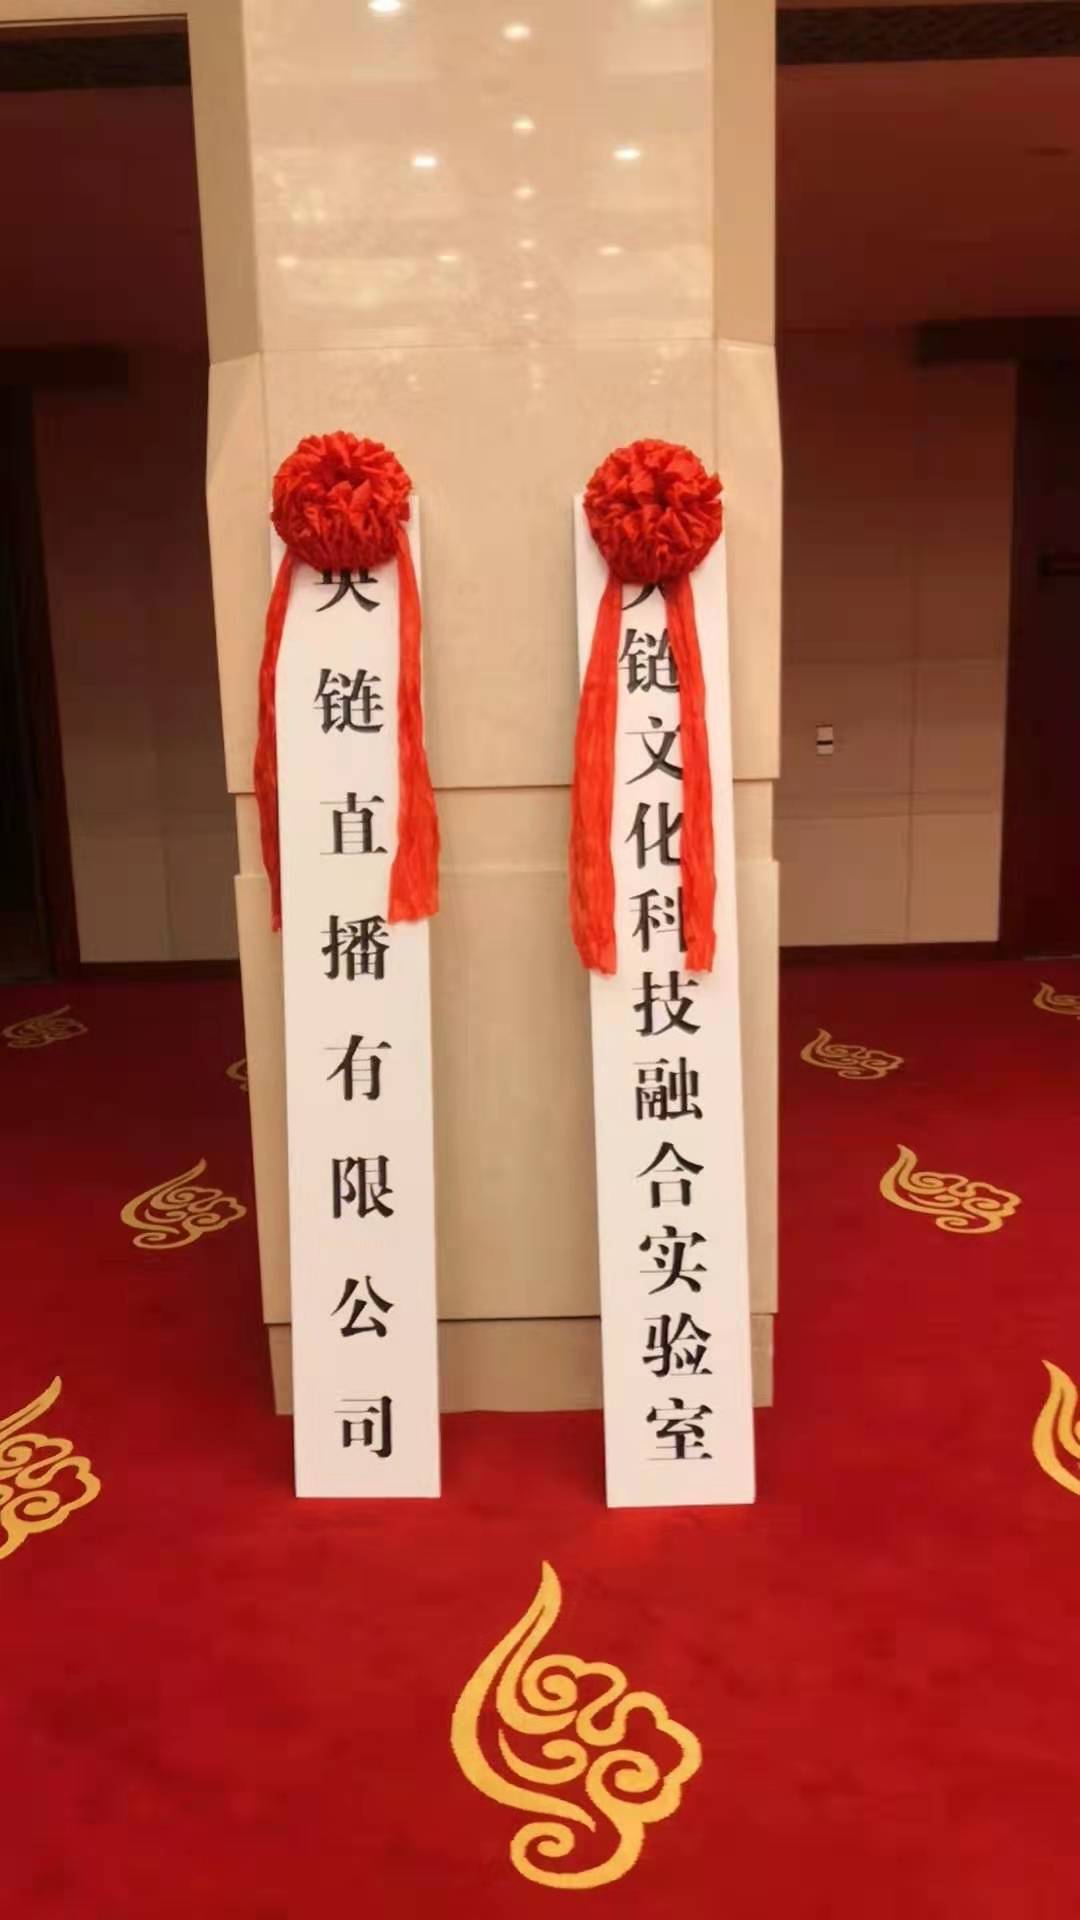 英链直播有限公司
链文化科技融合实验室